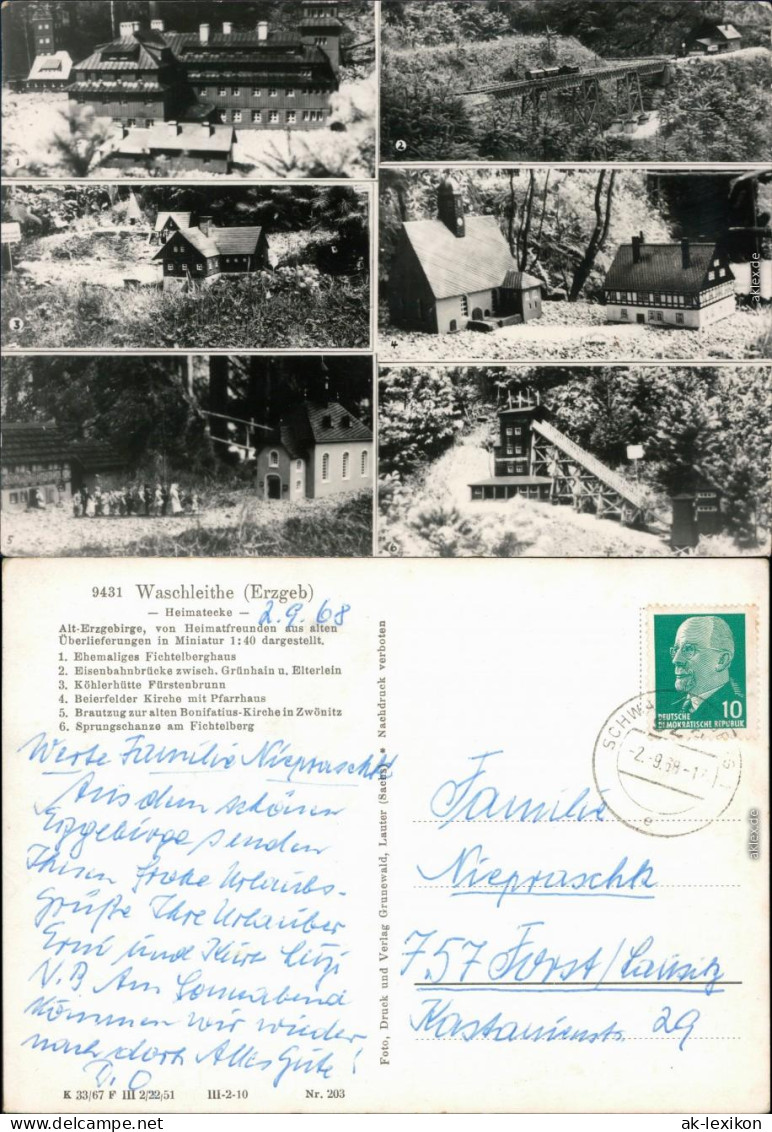 1
2
3
4
5
6
9431 Waschleithe (Erzgeb)
— Heimatecke —
2.9.68
Alt-Erzgebirge, von Heimatfreunden aus alten
Überlieferungen in Miniatur 1:40 dargestellt.
1. Ehemaliges Fichtelberghaus
2. Eisenbahnbrücke zwisch. Grünhain u. Elterlein
3. Köhlerhütte Fürstenbrunn
4. Beierfelder Kirche mit Pfarrhaus
5. Brautzug zur alten Bonifatius-Kirche in Zwönitz
6. Sprungschanze am Fichtelberg
Werte Familie Niepraschk
Aus dem schönen
Erzgebirge senden
Ihnen frohe Urlaubs-
grüße Ihre Urlauber
Erni und Käte
N.B Am Sonnabend
kommen wir wieder
nach dort Alles Gute!
K 33/67 F III 2/22/51 III-2-10 Nr. 203
Foto, Druck und Verlag Grunewald, Lauter (Sachs) • Nachdruck verboten
10
DEUTSCHE
DEMOKRATISCHE REPUBLIK
-2.-9.68-1
e
Familie
Niepraschk
757 Forst/Lausitz
Kastanienstr. 29
aklex.de
aklex.de
ak-lexikon.com